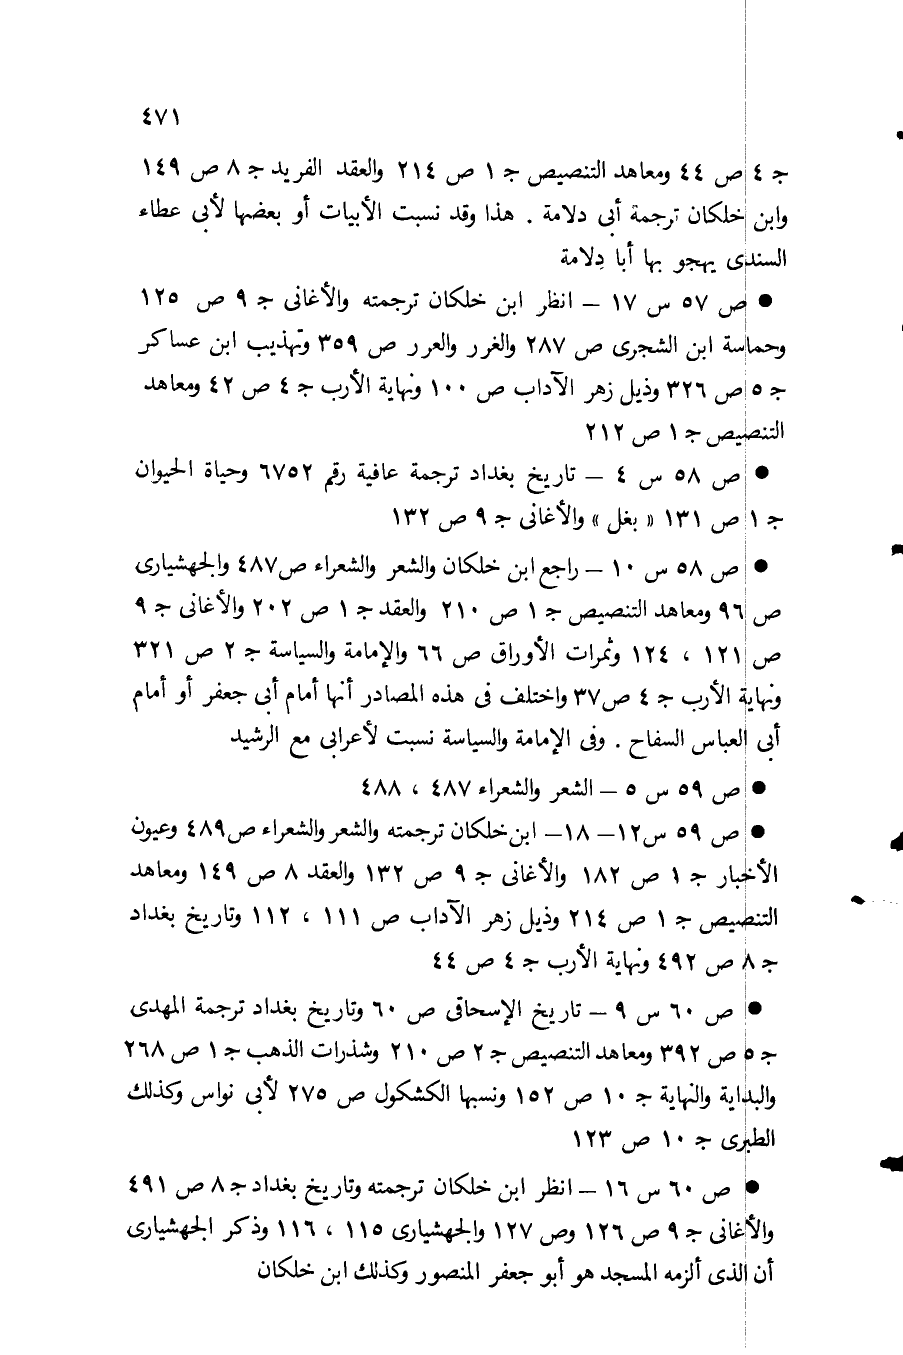 ٤٧١
ج ٤ ص ٤٤ ومعاهد التنصيص ج ١ ص ٢١٤ والعقد الفريد ج ٨ ص ١٤٩
وابن خلكان ترجمة أبى دلامة . هذا وقد نسبت الأبيات أو بعضها لأبى عطاء
السندى يهجو بها أبا دِلامة
● ص ٥٧ س ١٧ — انظر ابن خلكان ترجمته والأغانى ج ٩ ص ١٢٥
وحماسة ابن الشجرى ص ٢٨٧ والغرر والعرر ص ٣٥٩ وتهذيب ابن عساكر
ج ٥ ص ٣٢٦ وذيل زهر الآداب ص ١٠٠ ونهاية الأرب ج ٤ ص ٤٢ ومعاهد
التنصيص ج ١ ص ٢١٢
● ص ٥٨ س ٤ — تاريخ بغداد ترجمة عافية رقم ٦٧٥٢ وحياة الحيوان
ج ١ ص ١٣١ « بغل » والأغانى ج ٩ ص ١٣٢
● ص ٥٨ س ١٠ — راجع ابن خلكان والشعر والشعراء ص٤٨٧ والجهشيارى
ص ٩٦ ومعاهد التنصيص ج ١ ص ٢١٠ والعقد ج ١ ص ٢٠٢ والأغانى ج ٩
ص ١٢١ ، ١٢٤ وثمرات الأوراق ص ٦٦ والإمامة والسياسة ج ٢ ص ٣٢١
ونهاية الأرب ج ٤ ص٣٧ واختلف فى هذه المصادر أنها أمام أبى جعفر أو أمام
أبى العباس السفاح . وفى الإمامة والسياسة نسبت لأعرابى مع الرشيد
● ص ٥٩ س ٥ — الشعر والشعراء ٤٨٧ ، ٤٨٨
● ص ٥٩ س١٢— ١٨— ابن خلكان ترجمته والشعر والشعراء ص٤٨٩ وعيون
الأخبار ج ١ ص ١٨٢ والأغانى ج ٩ ص ١٣٢ والعقد ٨ ص ١٤٩ ومعاهد
التنصيص ج ١ ص ٢١٤ وذيل زهر الآداب ص ١١١ ، ١١٢ وتاريخ بغداد
ج ٨ ص ٤٩٢ ونهاية الأرب ج ٤ ص ٤٤
● ص ٦٠ س ٩ — تاريخ الإسحاقى ص ٦٠ وتاريخ بغداد ترجمة المهدى
ج ٥ ص ٣٩٢ ومعاهد التنصيص ج ٢ ص ٢١٠ وشذرات الذهب ج ١ ص ٢٦٨
والبداية والنهاية ج ١٠ ص ١٥٢ ونسبها الكشكول ص ٢٧٥ لأبى نواس وكذلك
الطبرى ج ١٠ ص ١٢٣
● ص ٦٠ س ١٦ — انظر ابن خلكان ترجمته وتاريخ بغداد ج ٨ ص ٤٩١
والأغانى ج ٩ ص ١٢٦ وص ١٢٧ والجهشيارى ١١٥ ، ١١٦ وذكر الجهشيارى
أن الذى ألزمه المسجد هو أبو جعفر المنصور وكذلك ابن خلكان